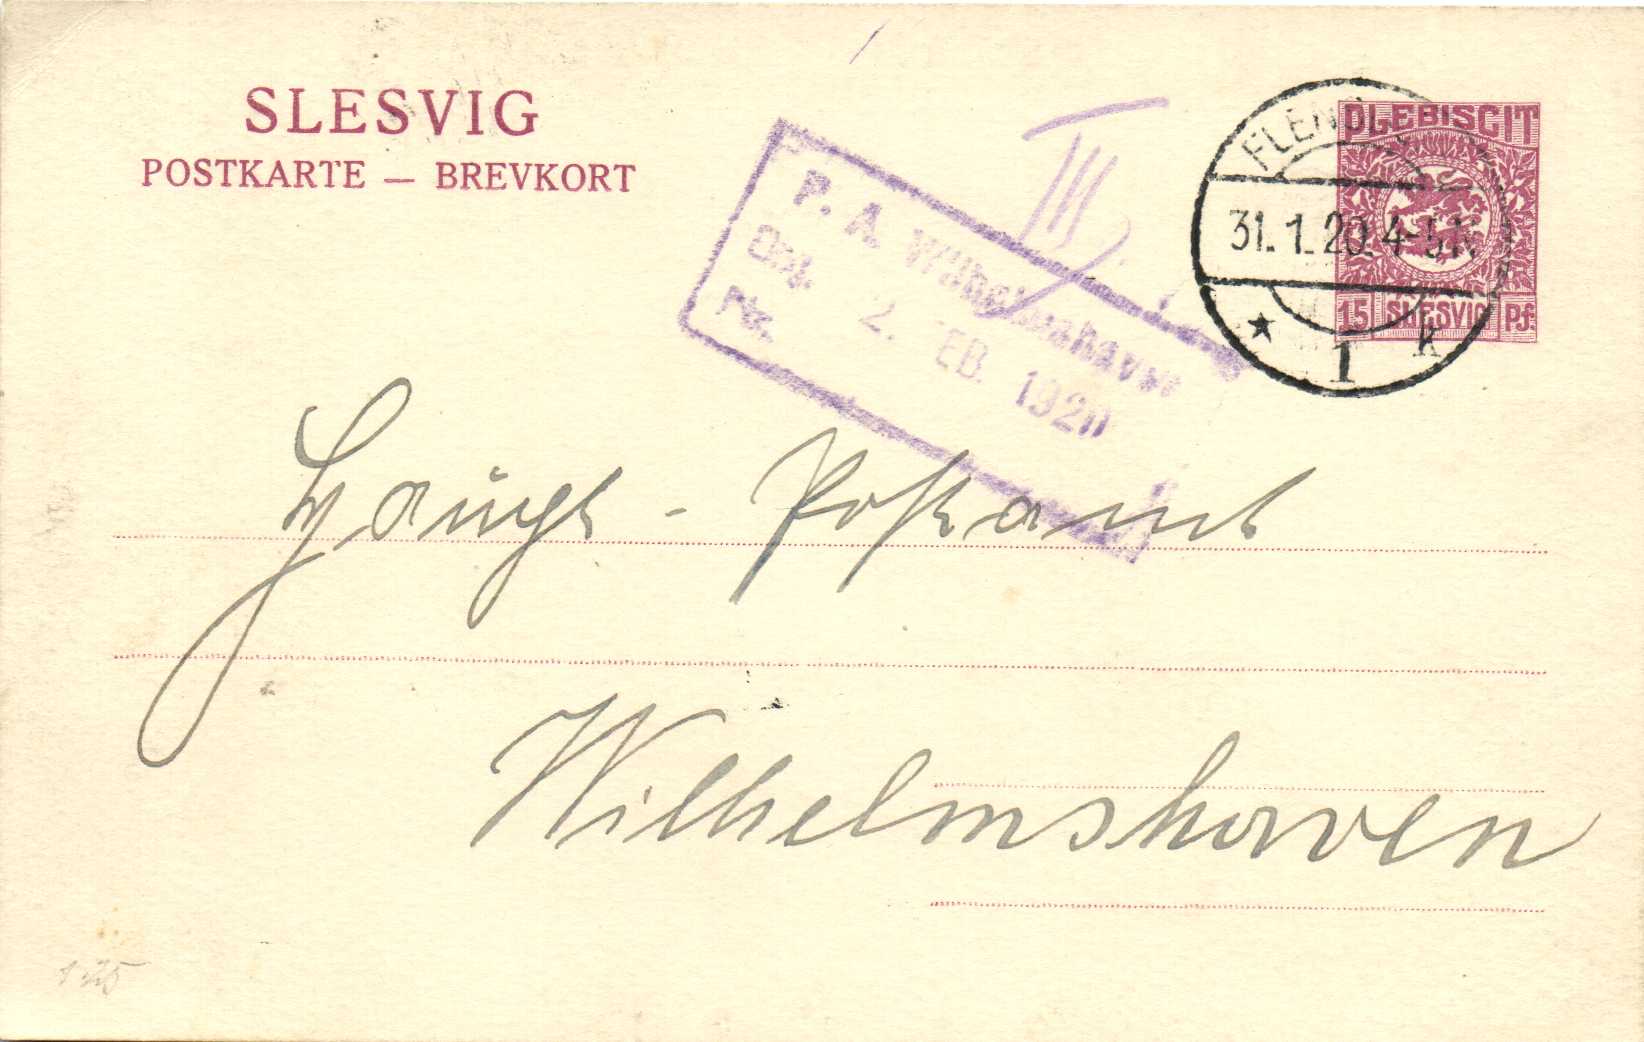 SLESVIG
POSTKARTE — BREVKORT
PLEBISCIT
15 SLESVIG Pf.
31. 1. 20. 4-5 N.
* 1 k
P. A. Wilhelmshaven
2. FEB. 1920
Nr.
Haupt - Postamt
Wilhelmshaven